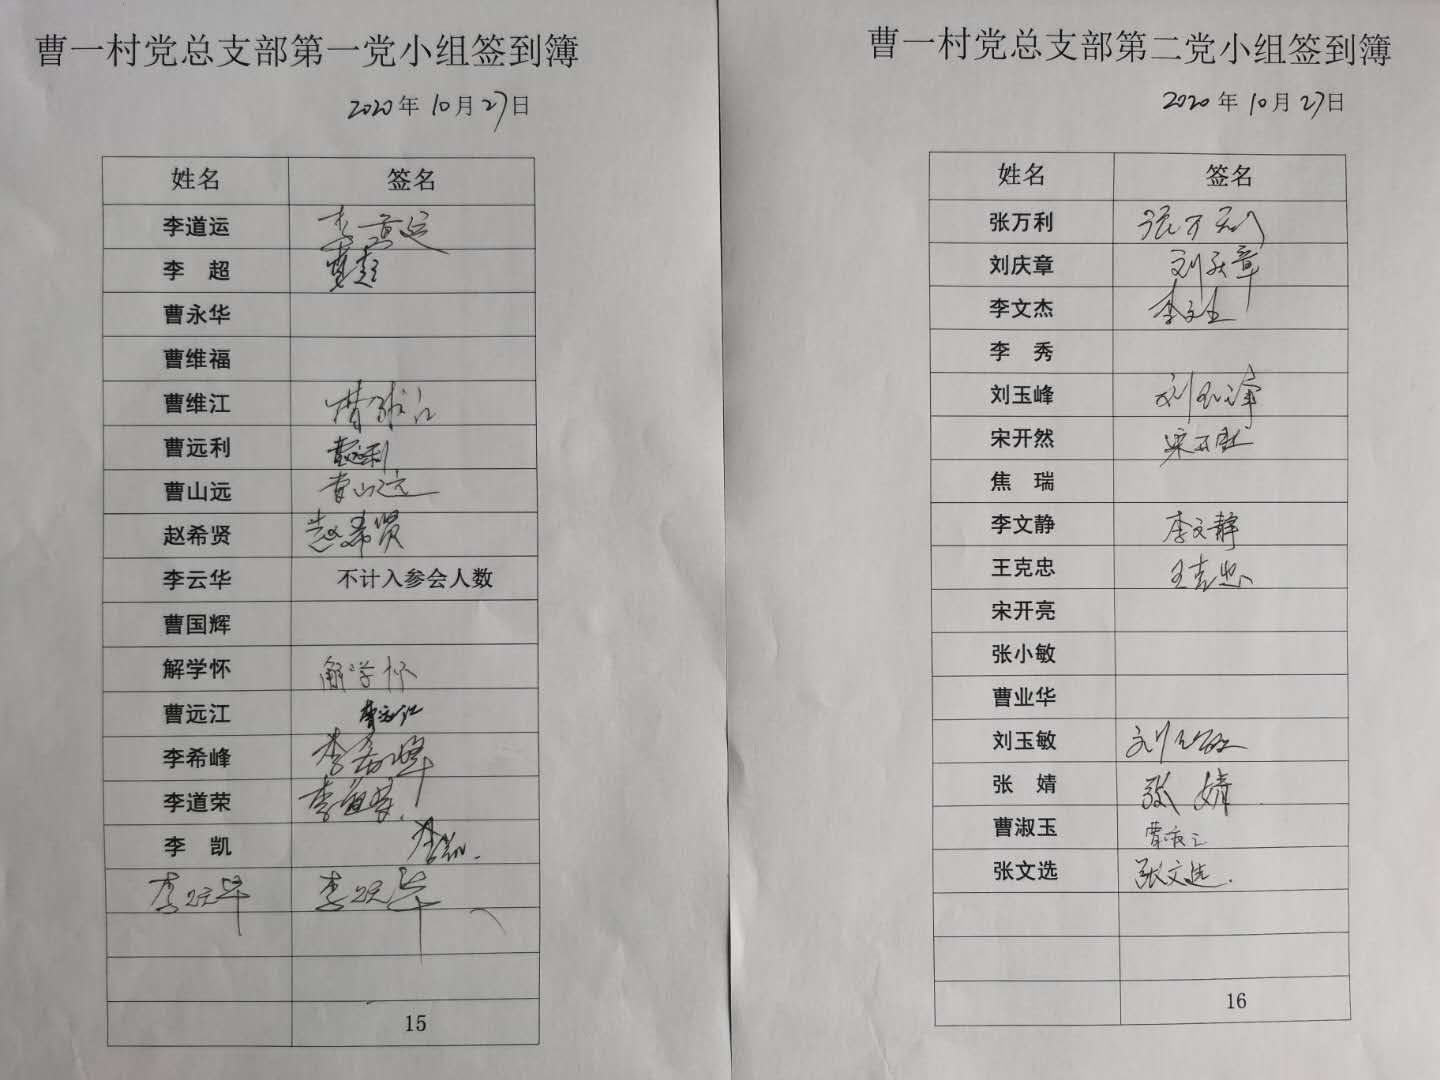 曹一村党总支部第一党小组签到簿
2020年10月27日
姓名 签名
李道运 李道运
李 超
曹永华
曹维福
曹维江 曹维江
曹远利 曹远利
曹山远 曹山远
赵希贤 赵希贤
李云华 不计入参会人数
曹国辉
解学怀 解学怀
曹远江 曹远江
李希峰 李希峰
李道荣 李道荣
李 凯 李凯
15
曹一村党总支部第二党小组签到簿
2020年10月27日
姓名 签名
张万利 张万利
刘庆章 刘庆章
李文杰 李文杰
李 秀
刘玉峰 刘玉峰
宋开然 宋开然
焦 瑞
李文静 李文静
王克忠 王克忠
宋开亮
张小敏
曹业华
刘玉敏 刘玉敏
张 婧 张婧
曹淑玉 曹淑玉
张文选 张文选
16